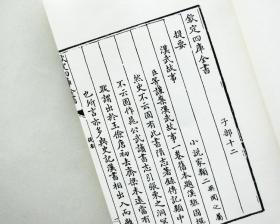 欽定四庫全書
子部十二
漢武故事
小説家類二異聞之屬
提要
臣等謹案漢武故事一卷舊本題漢班固撰
然史不云固有此書隋志著録傳記類中亦
不云固作晁公武讀書志引張柬之洞冥記跋
謂出於王儉唐初去齊梁未遠當有
也所言亦多與史記漢書相出入而
欽定四庫全書